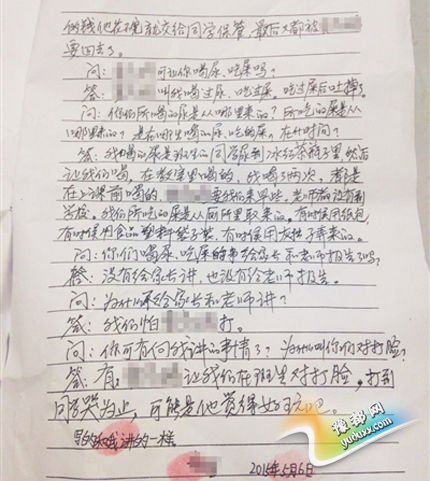 的钱他花不完就交给同学保管，最后又都被
要回去了。
问： 可让你喝尿、吃屎吗？
答： 叫我喝过尿、吃过屎。吃过屎后吐掉了。
问：你们所喝的尿是从哪里来的？所吃的屎是从
哪里来的？是在哪里喝的尿、吃的屎。在什时间？
答：我喝的尿是班里的同学尿到冰红茶瓶子里，然后
让我们喝，在教室里喝的，我喝了两次，都是
在上课前喝的， 要我们来早些，老师都没有到
学校。我们所吃的屎是从厕所里取来的。有时候用纸包，
有时候用食品塑料袋子装，有时候用 弄来的。
问：你们喝尿、吃屎的事给家长和老师报告了吗？
答：没有给家长讲，也没有给老师报告。
问：为什么不给家长和老师讲？
答：我们怕 打。
问：你可有何我讲的事情了？为什么叫你们对打脸？
答：有。 让我们在班里对打脸，打到
同学哭为止，可能是他觉得好玩吧。
和我讲的一样。
2015年5月6日
豫都网
yuduxx.com